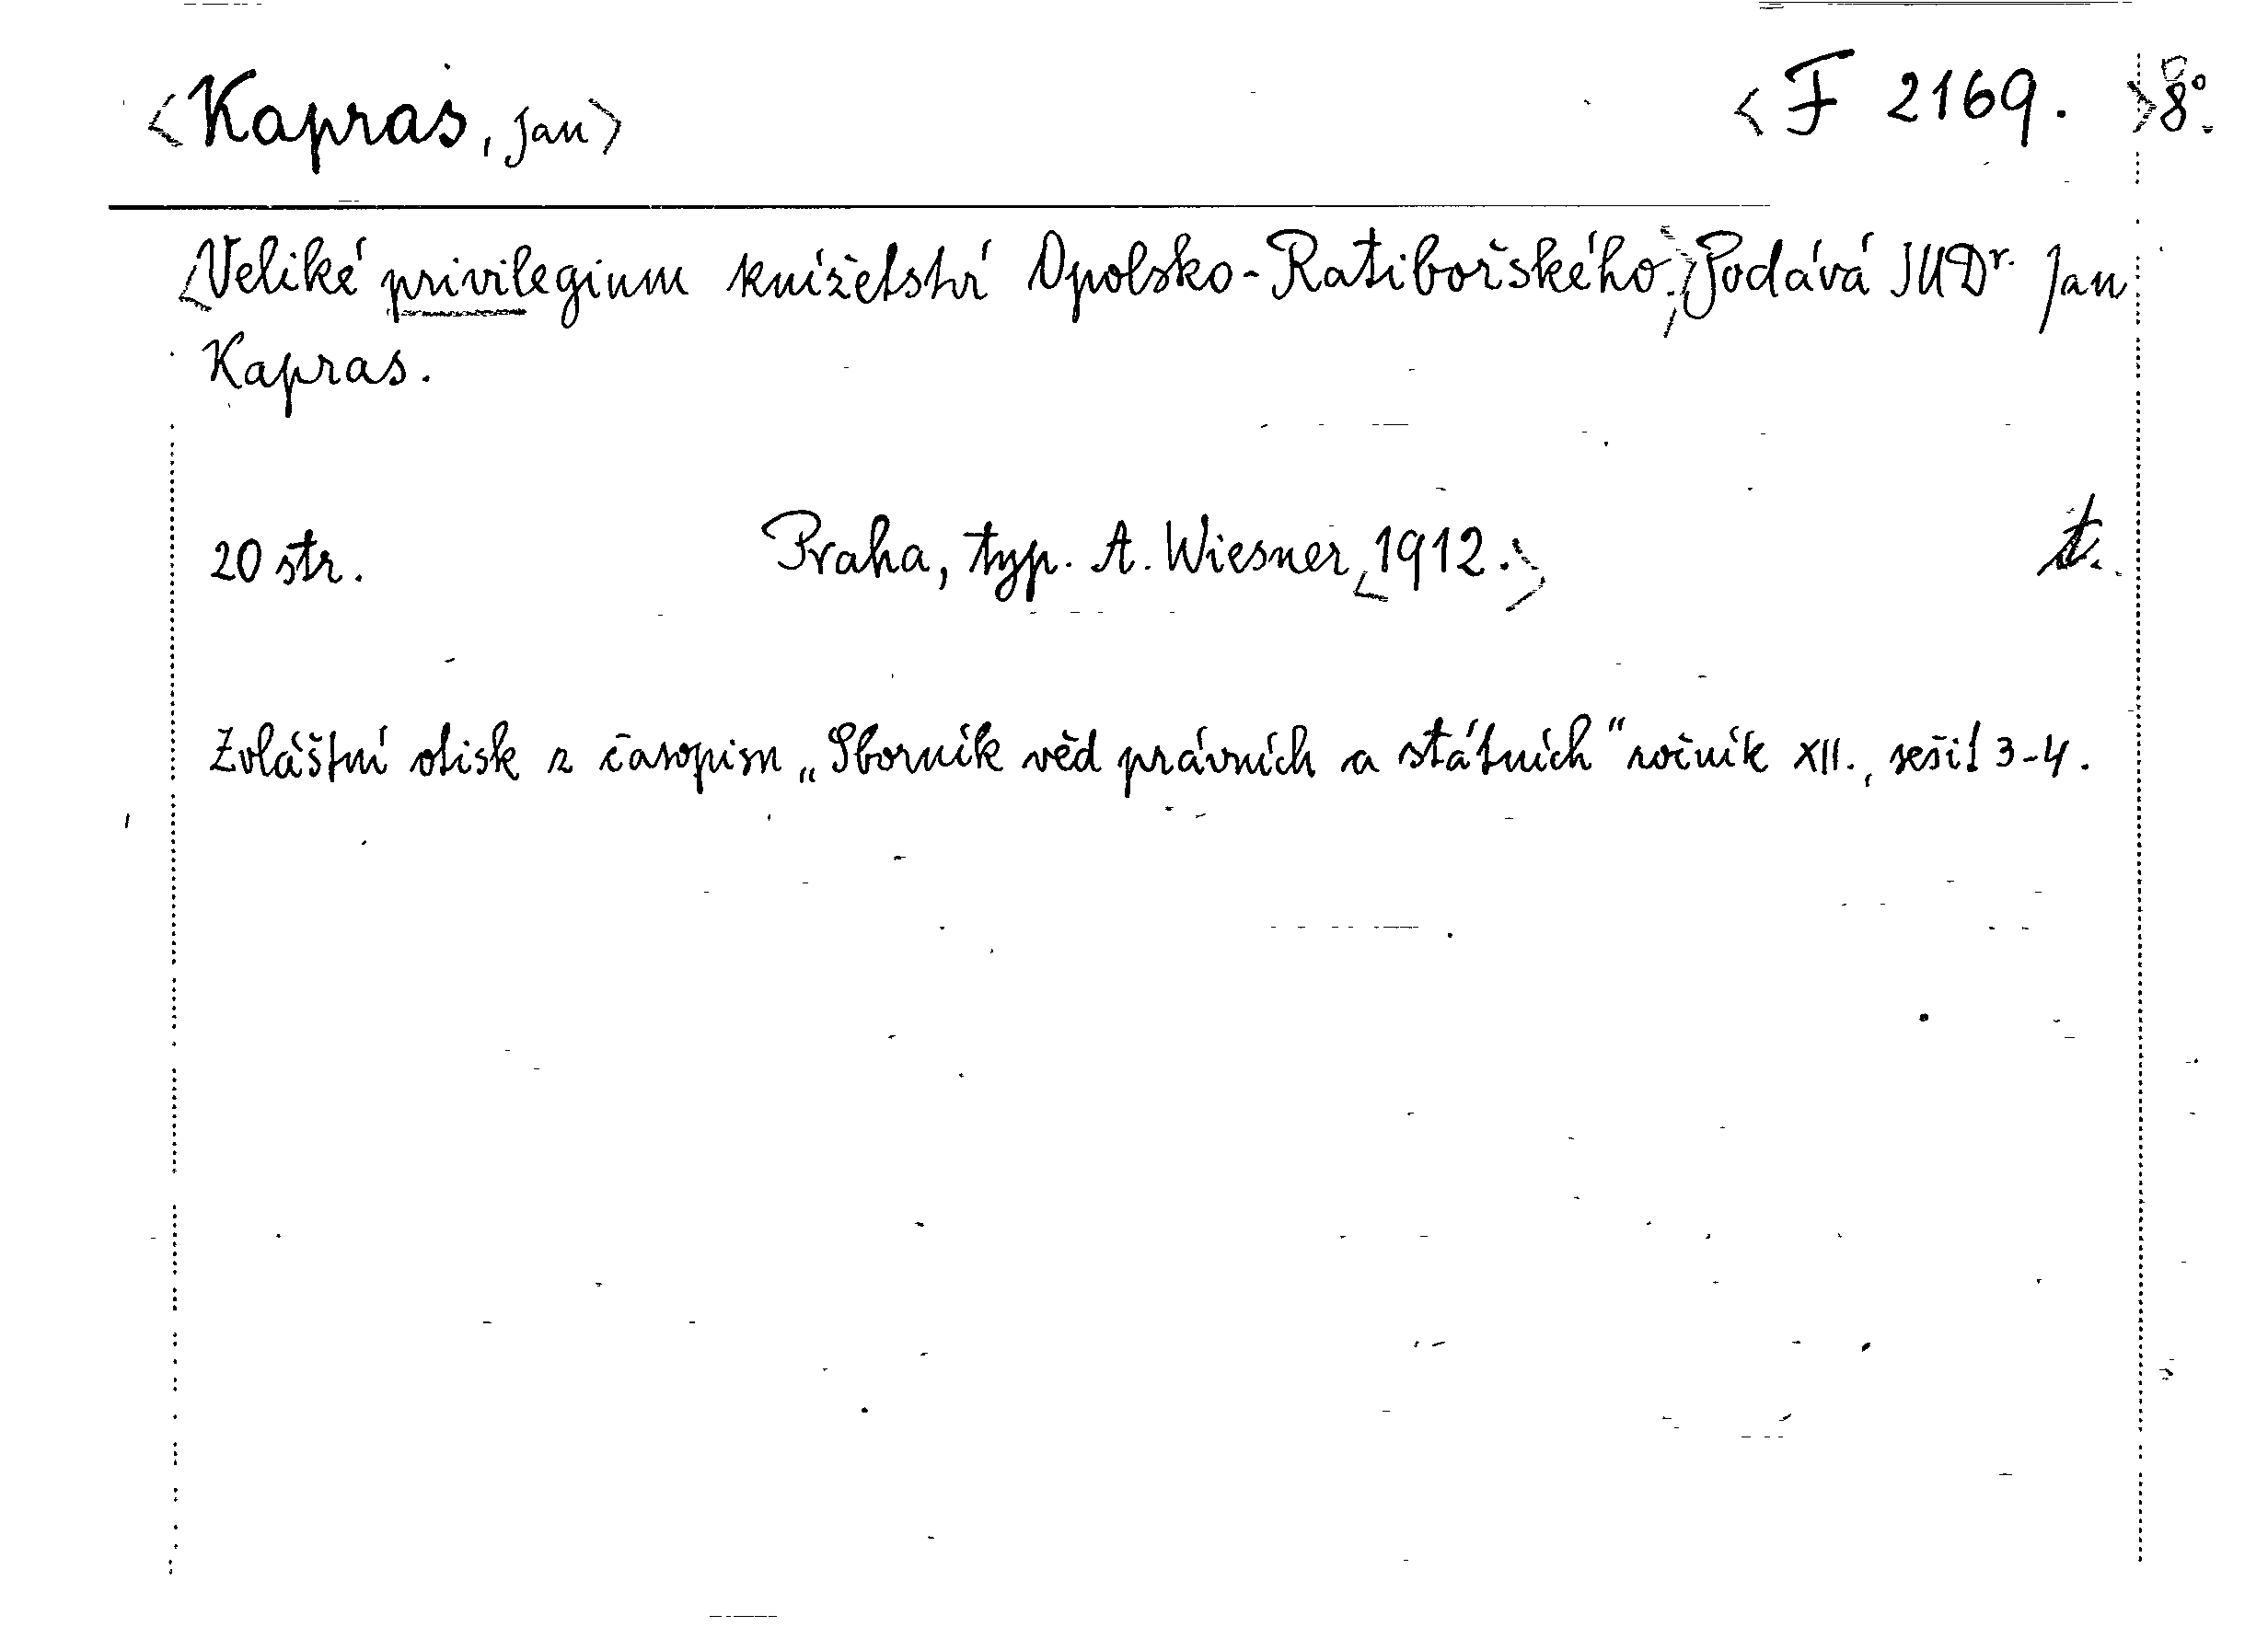 <Kapras, Jan> <F 2169. >8°.
<Veliké privilegium knížetství Opolsko-Ratibořského.> Podává JUDr. Jan
Kapras.
20 str. Praha, typ. A. Wiesner <1912.> t.
Zvláštní otisk z časopisu „Sborník věd právních a státních“ ročník XII., sešit 3-4.